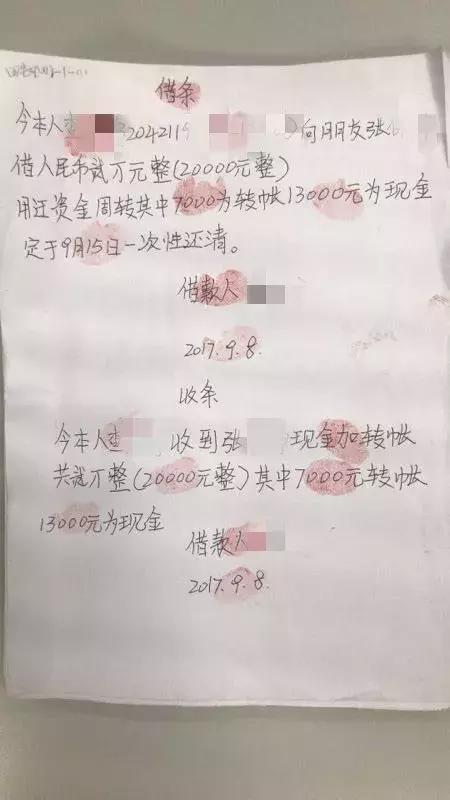 借条
今本人查 2042119 向朋友张
借人民币贰万元整(20000元整)
用途资金周转其中7000为转帐13000元为现金
定于9月15日一次性还清。
借款人
2017.9.8.
收条
今本人查 收到张 现金加转帐
共贰万整(20000元整)其中7000元转帐
13000元为现金
借款人
2017.9.8.